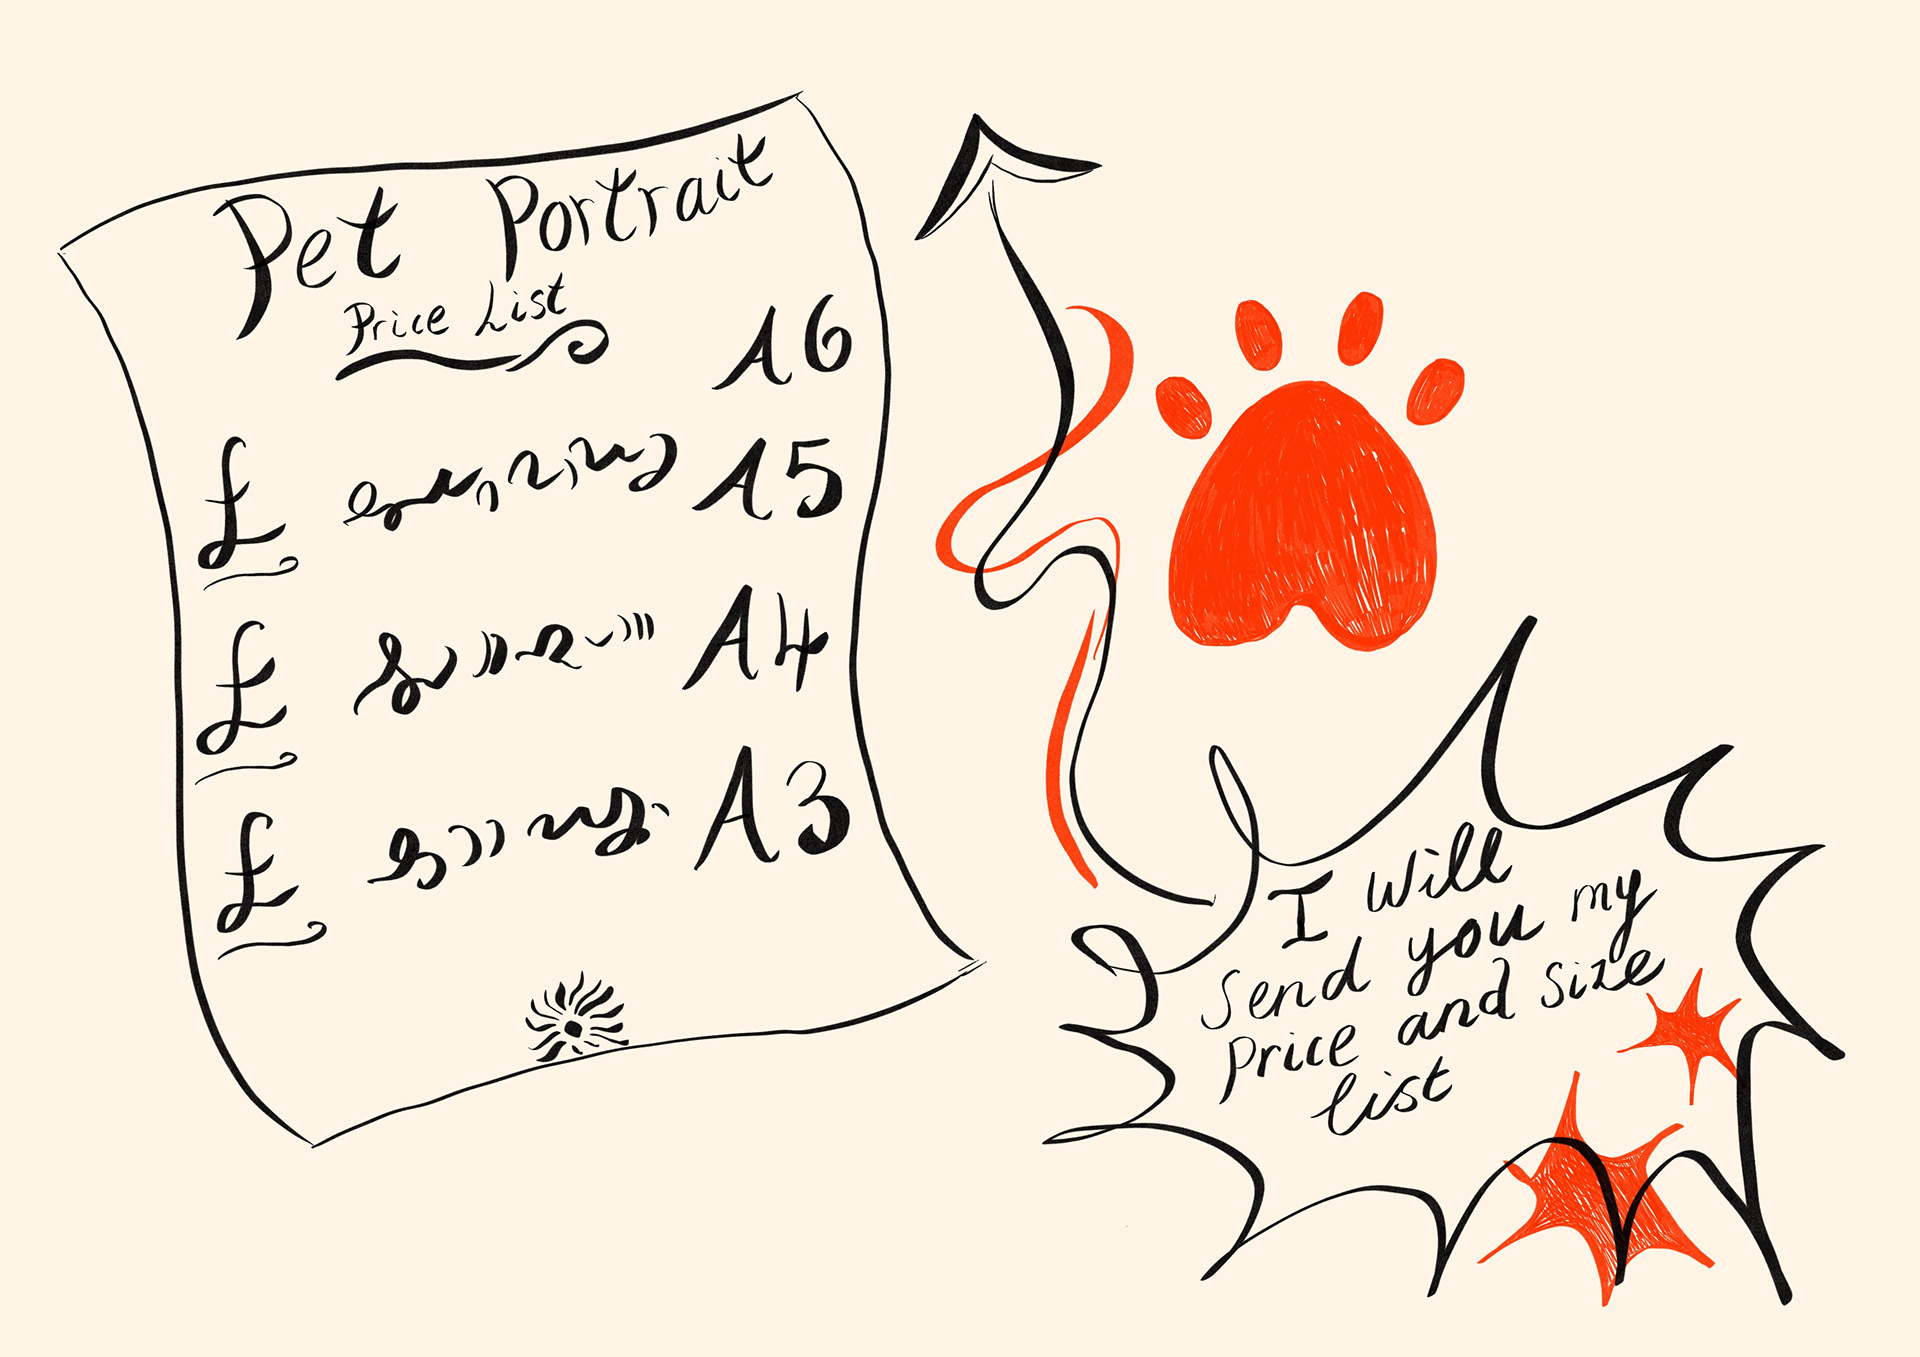 Pet Portrait
Price List
A6
£ A5
£ A4
£ A3
I Will
Send you my
Price and Size
list